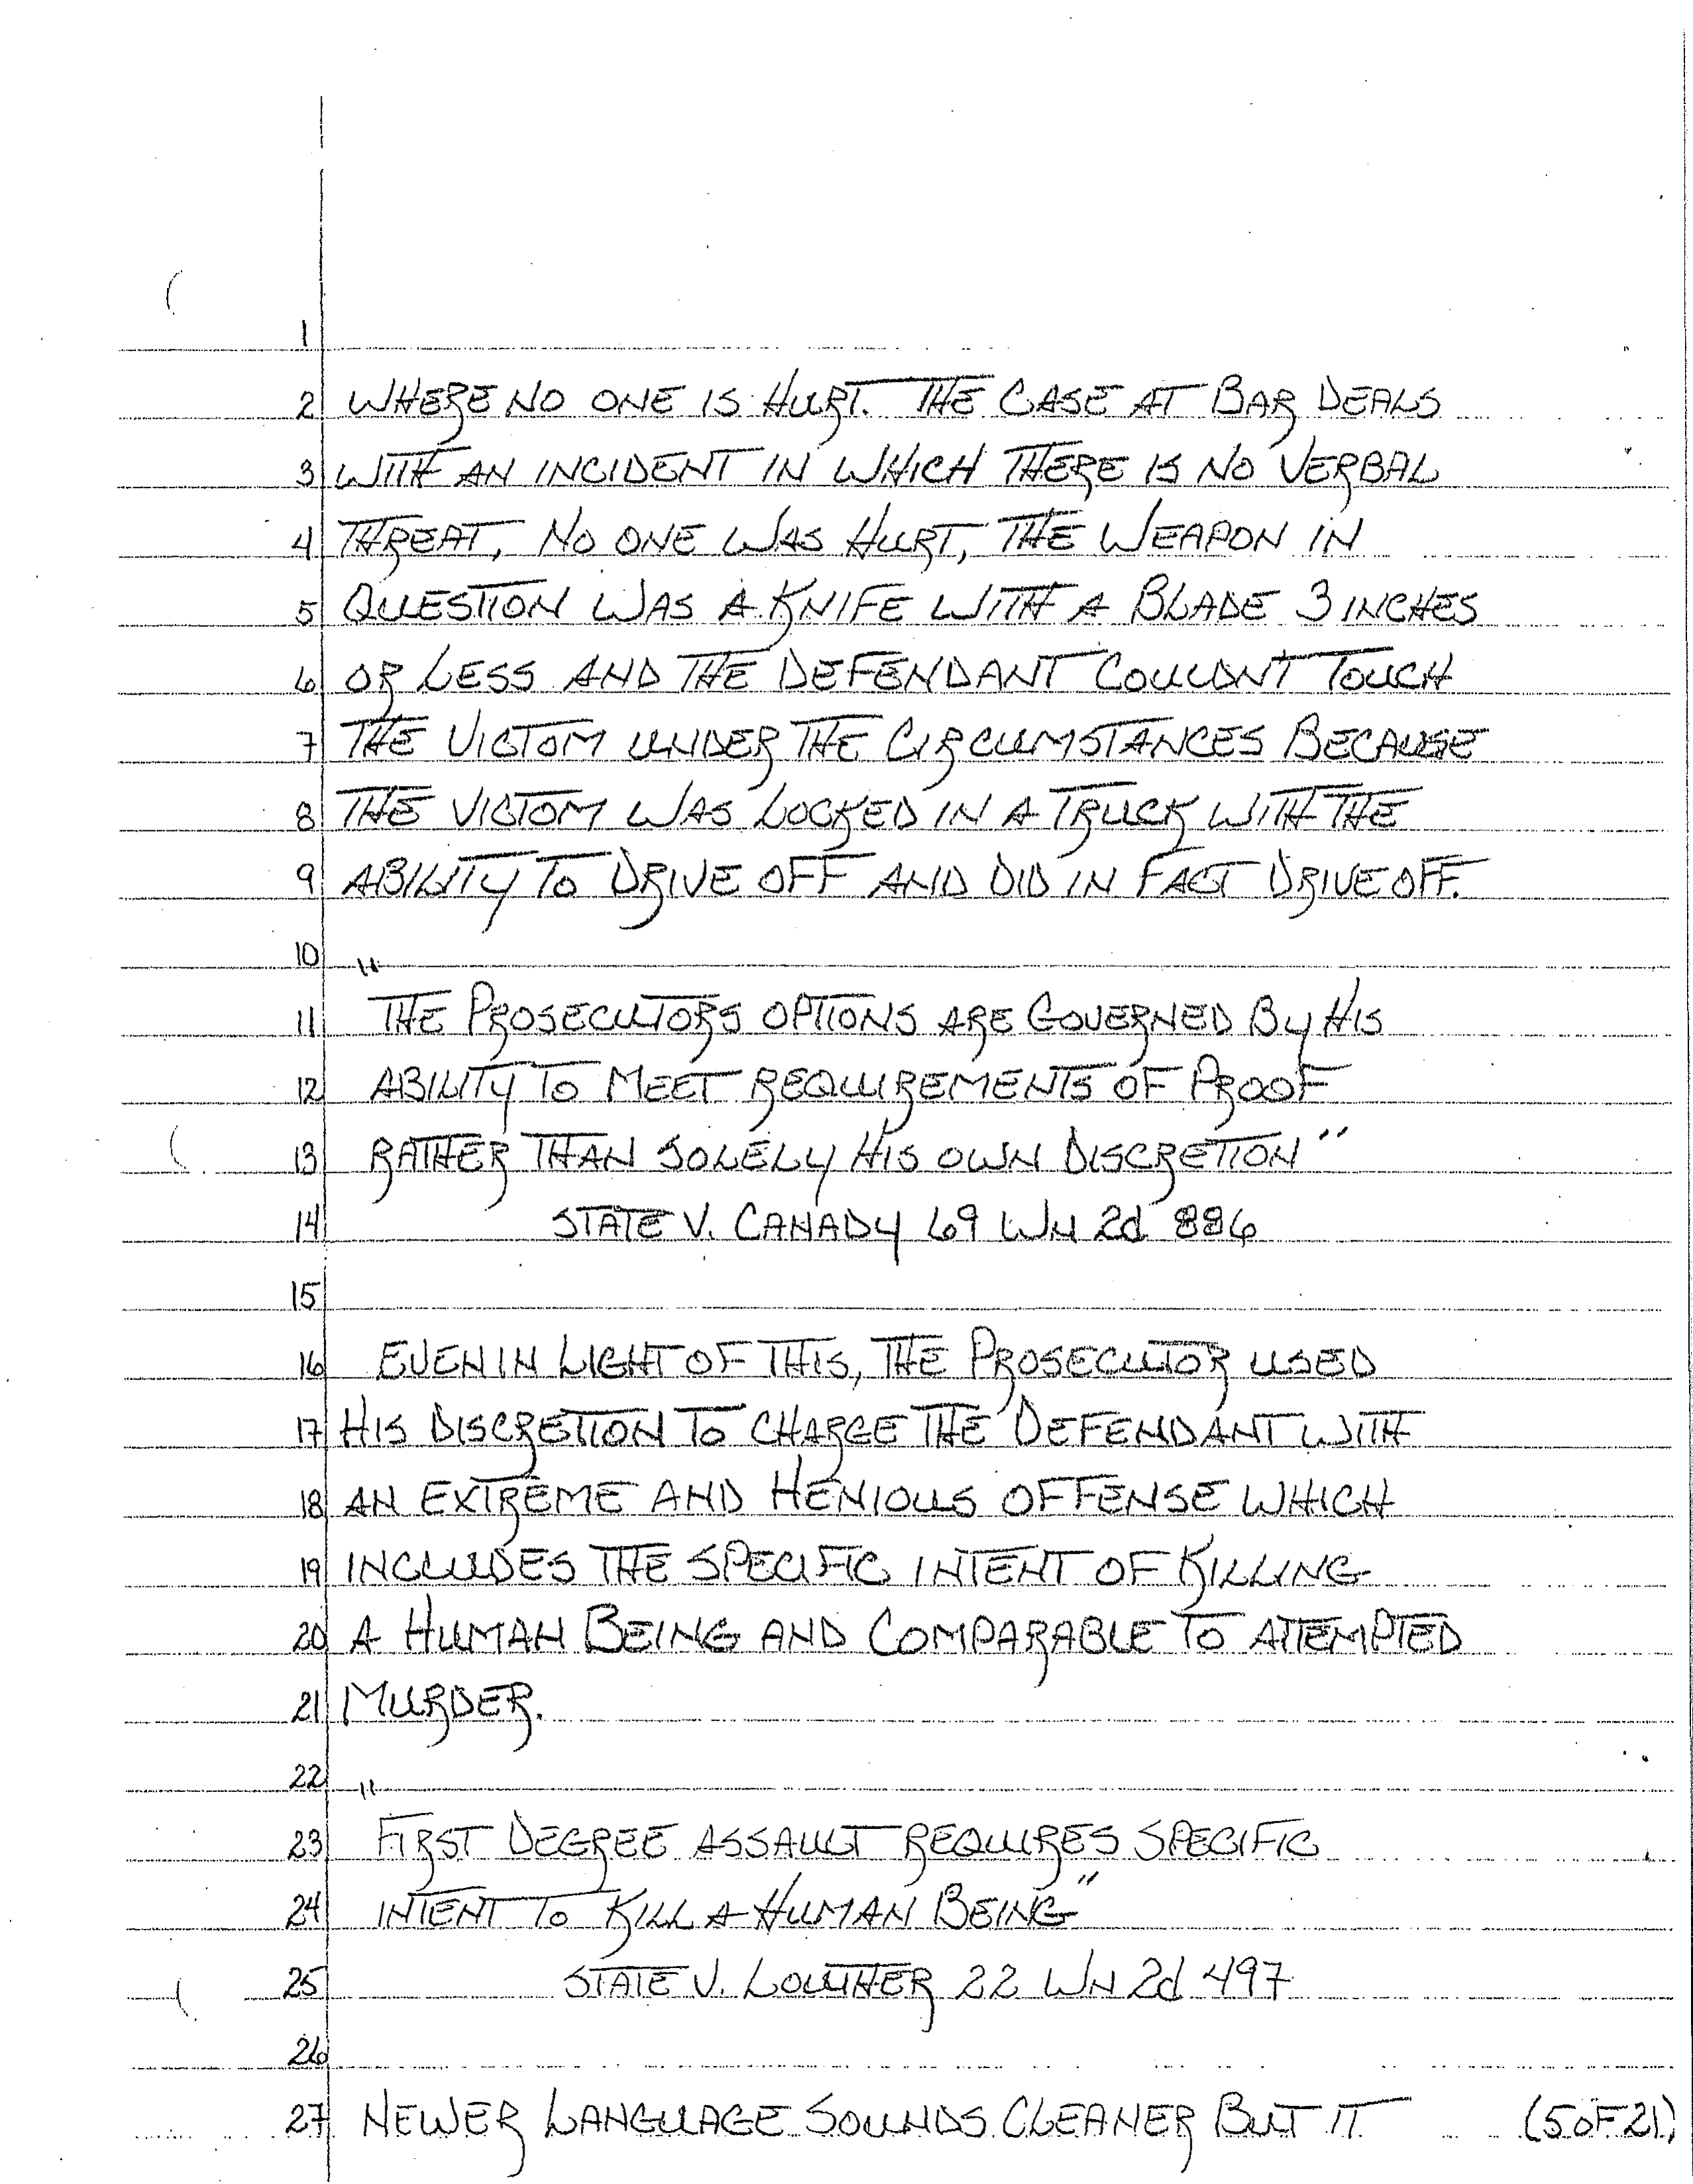 1
2 WHERE NO ONE IS HURT. THE CASE AT BAR DEALS
3 WITH AN INCIDENT IN WHICH THERE IS NO VERBAL
4 THREAT, NO ONE WAS HURT, THE WEAPON IN
5 QUESTION WAS A KNIFE WITH A BLADE 3 INCHES
6 OR LESS AND THE DEFENDANT COULDNT TOUCH
7 THE VICTOM UNDER THE CIRCUMSTANCES BECAUSE
8 THE VICTOM WAS LOCKED IN A TRUCK WITH THE
9 ABILITY TO DRIVE OFF AND DID IN FACT DRIVE OFF.
10 "
11 THE PROSECUTORS OPTIONS ARE GOVERNED BY HIS
12 ABILITY TO MEET REQUIREMENTS OF PROOF
13 RATHER THAN SOLELY HIS OWN DISCRETION"
14 STATE V. CANADY 69 WN 2d 886
15
16 EVEN IN LIGHT OF THIS, THE PROSECUTOR USED
17 HIS DISCRETION TO CHARGE THE DEFENDANT WITH
18 AN EXTREME AND HENIOUS OFFENSE WHICH
19 INCLUDES THE SPECIFIC INTENT OF KILLING
20 A HUMAN BEING AND COMPARABLE TO ATTEMPTED
21 MURDER.
22 "
23 FIRST DEGREE ASSAULT REQUIRES SPECIFIC
24 INTENT TO KILL A HUMAN BEING"
25 STATE V. LOUTHER 22 WN 2d 497
26
27 NEWER LANGUAGE SOUNDS CLEANER BUT IT (5 OF 21)